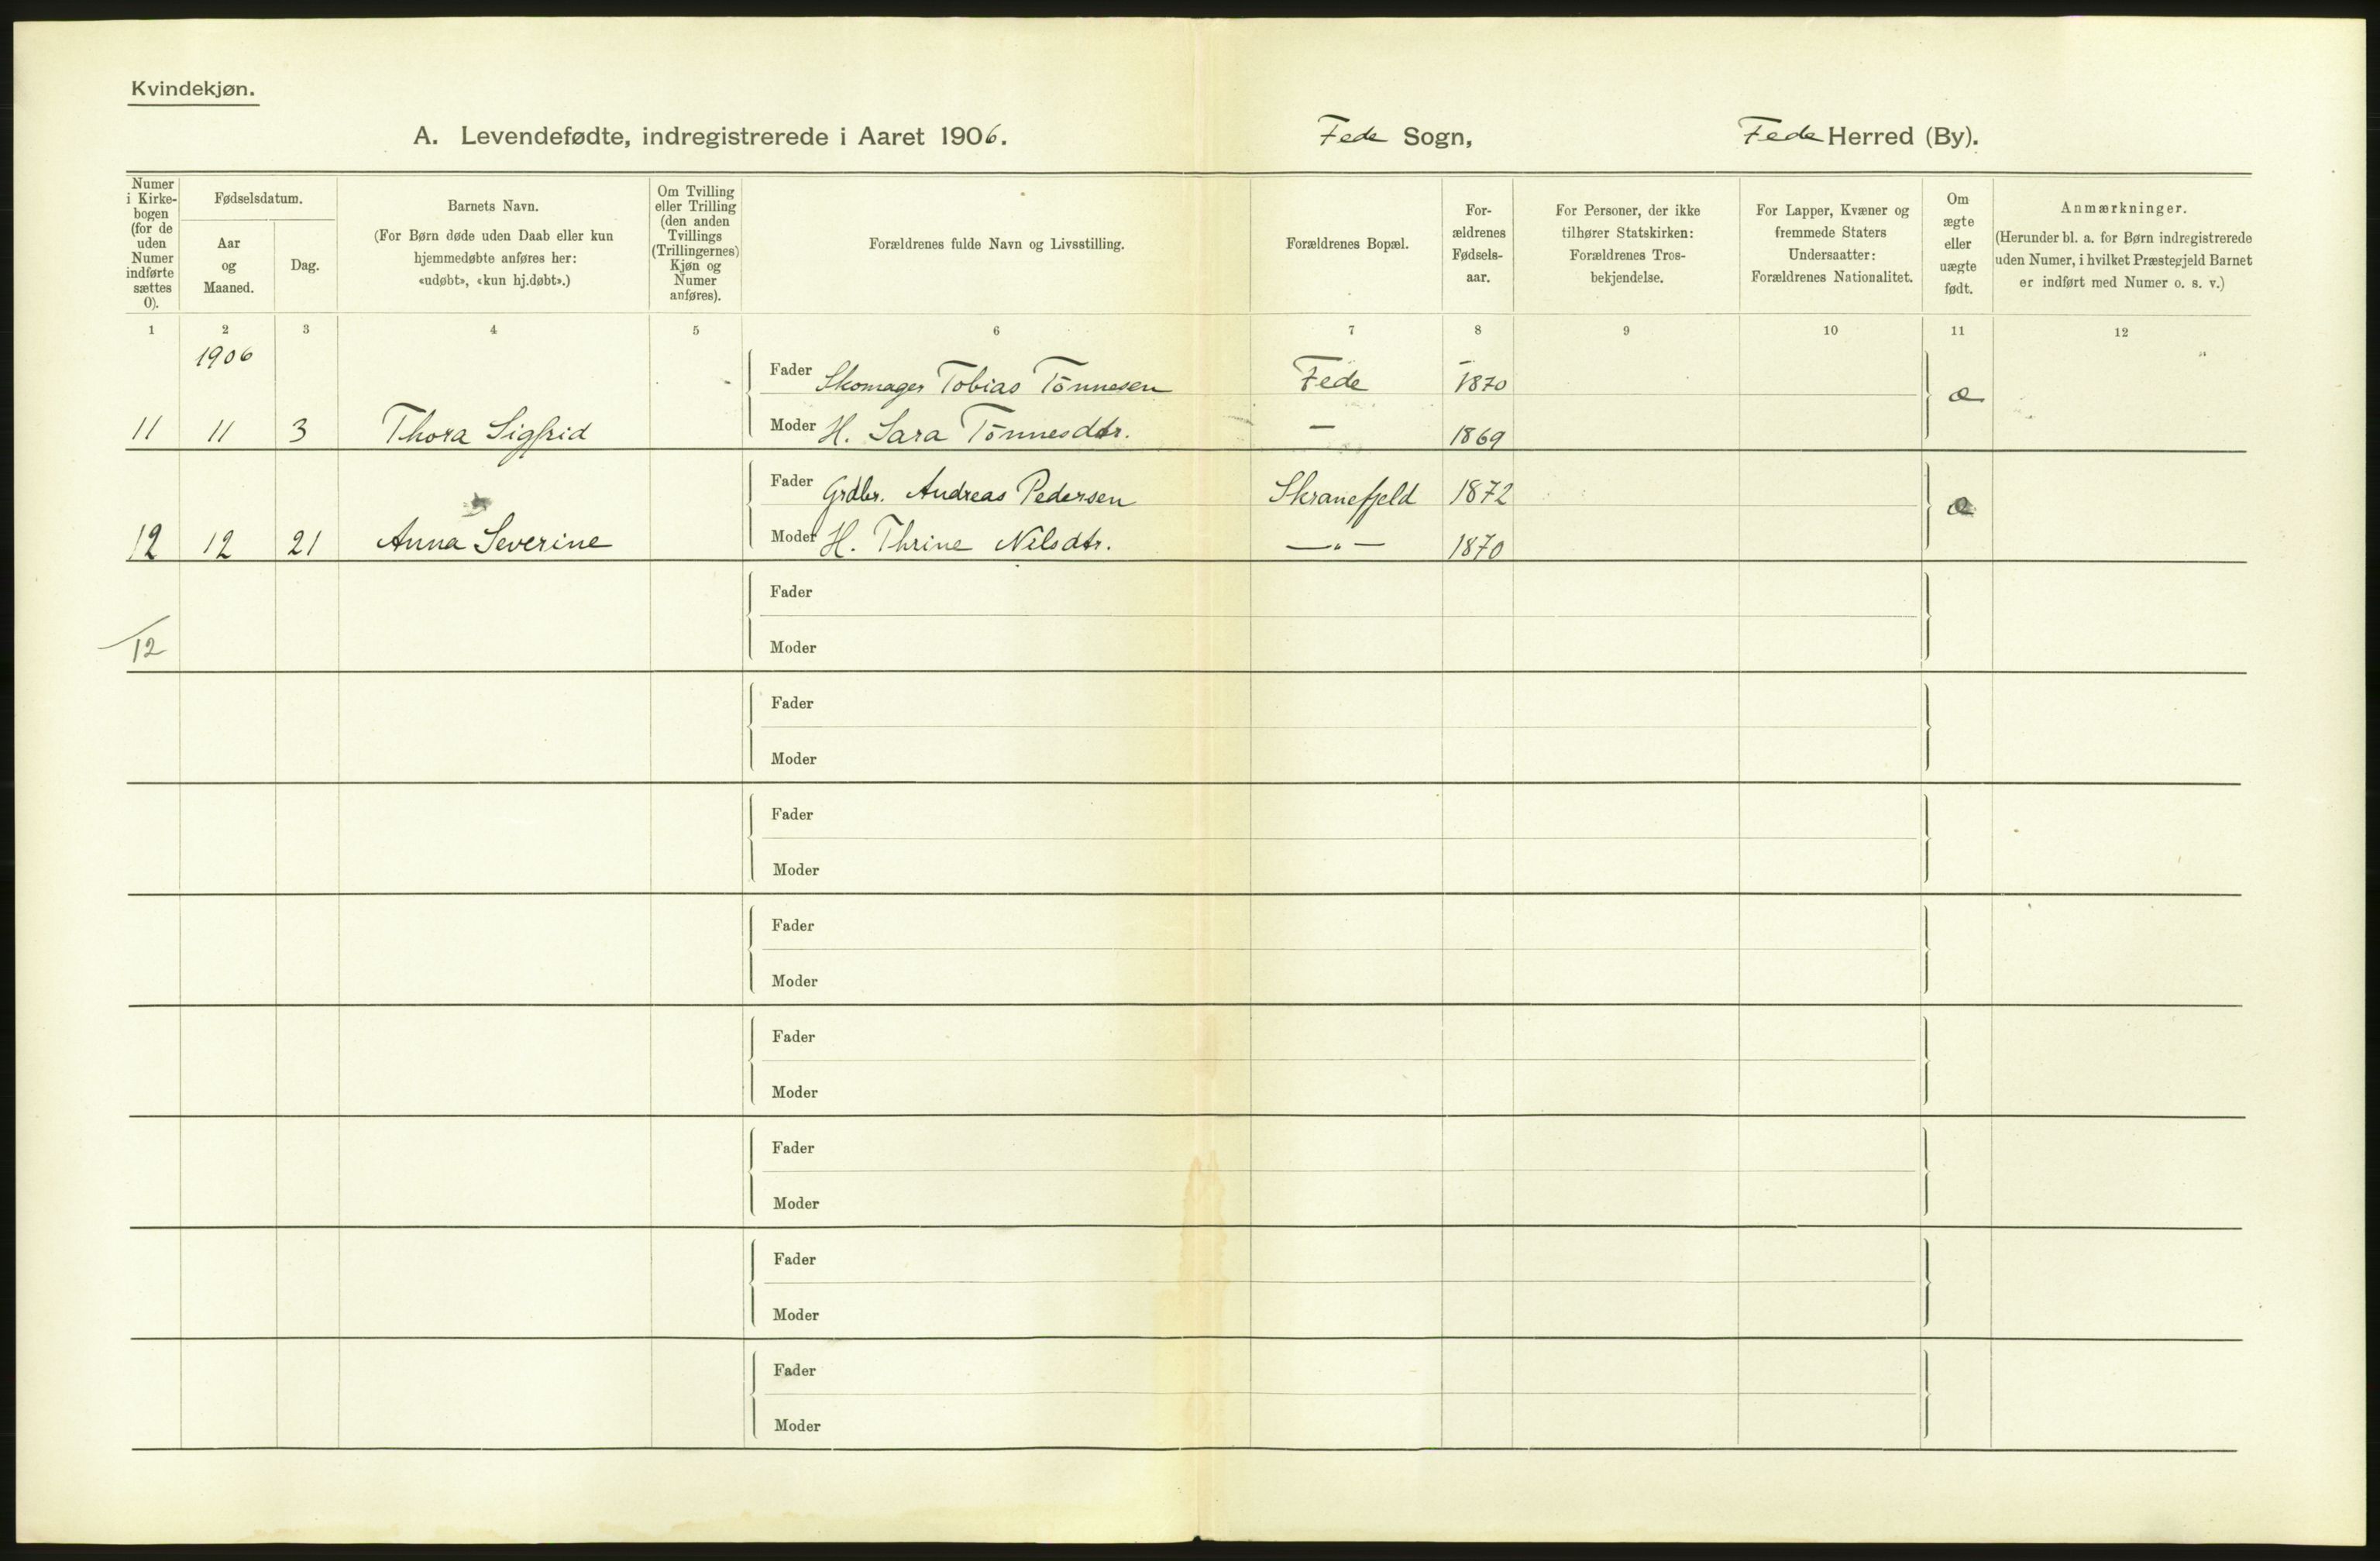 Kvindekjøn.
A. Levendefødte, indregistrerede i Aaret 1906. Fede Sogn, Fede Herred (By).
Numer i Kirkebogen (for de uden Numer indførte sættes 0).
Fødselsdatum.
Aar og Maaned.
Dag.
Barnets Navn.
(For Børn døde uden Daab eller kun
hjemmedøbte anføres her:
«udøbt», «kun hj.døbt».)
Om Tvilling
eller Trilling
(den anden
Tvillings
(Trillingernes)
Kjøn og
Numer
anføres).
Forældrenes fulde Navn og Livsstilling.
Forældrenes Bopæl.
For-
ældrenes
Fødsels-
aar.
For Personer, der ikke
tilhører Statskirken:
Forældrenes Tros-
bekjendelse.
For Lapper, Kvæner og
fremmede Staters
Undersaatter:
Forældrenes Nationalitet.
Om
ægte
eller
uægte
født.
Anmærkninger.
(Herunder bl. a. for Børn indregistrerede
uden Numer, i hvilket Præstegjeld Barnet
er indført med Numer o. s. v.)
1 2 3 4 5 6 7 8 9 10 11 12
1906
Fader Skomager Tobias Tönnesen Fede 1870 æ
11 11 3 Thora Sigfrid Moder H. Sara Tönnesdtr. — 1869
Fader Grdbr. Andreas Pedersen Skranefjeld 1872 æ
12 12 21 Anna Severine Moder H. Thrine Nilsdtr. —"— 1870
Fader
12 Moder
Fader
Moder
Fader
Moder
Fader
Moder
Fader
Moder
Fader
Moder
Fader
Moder
Fader
Moder